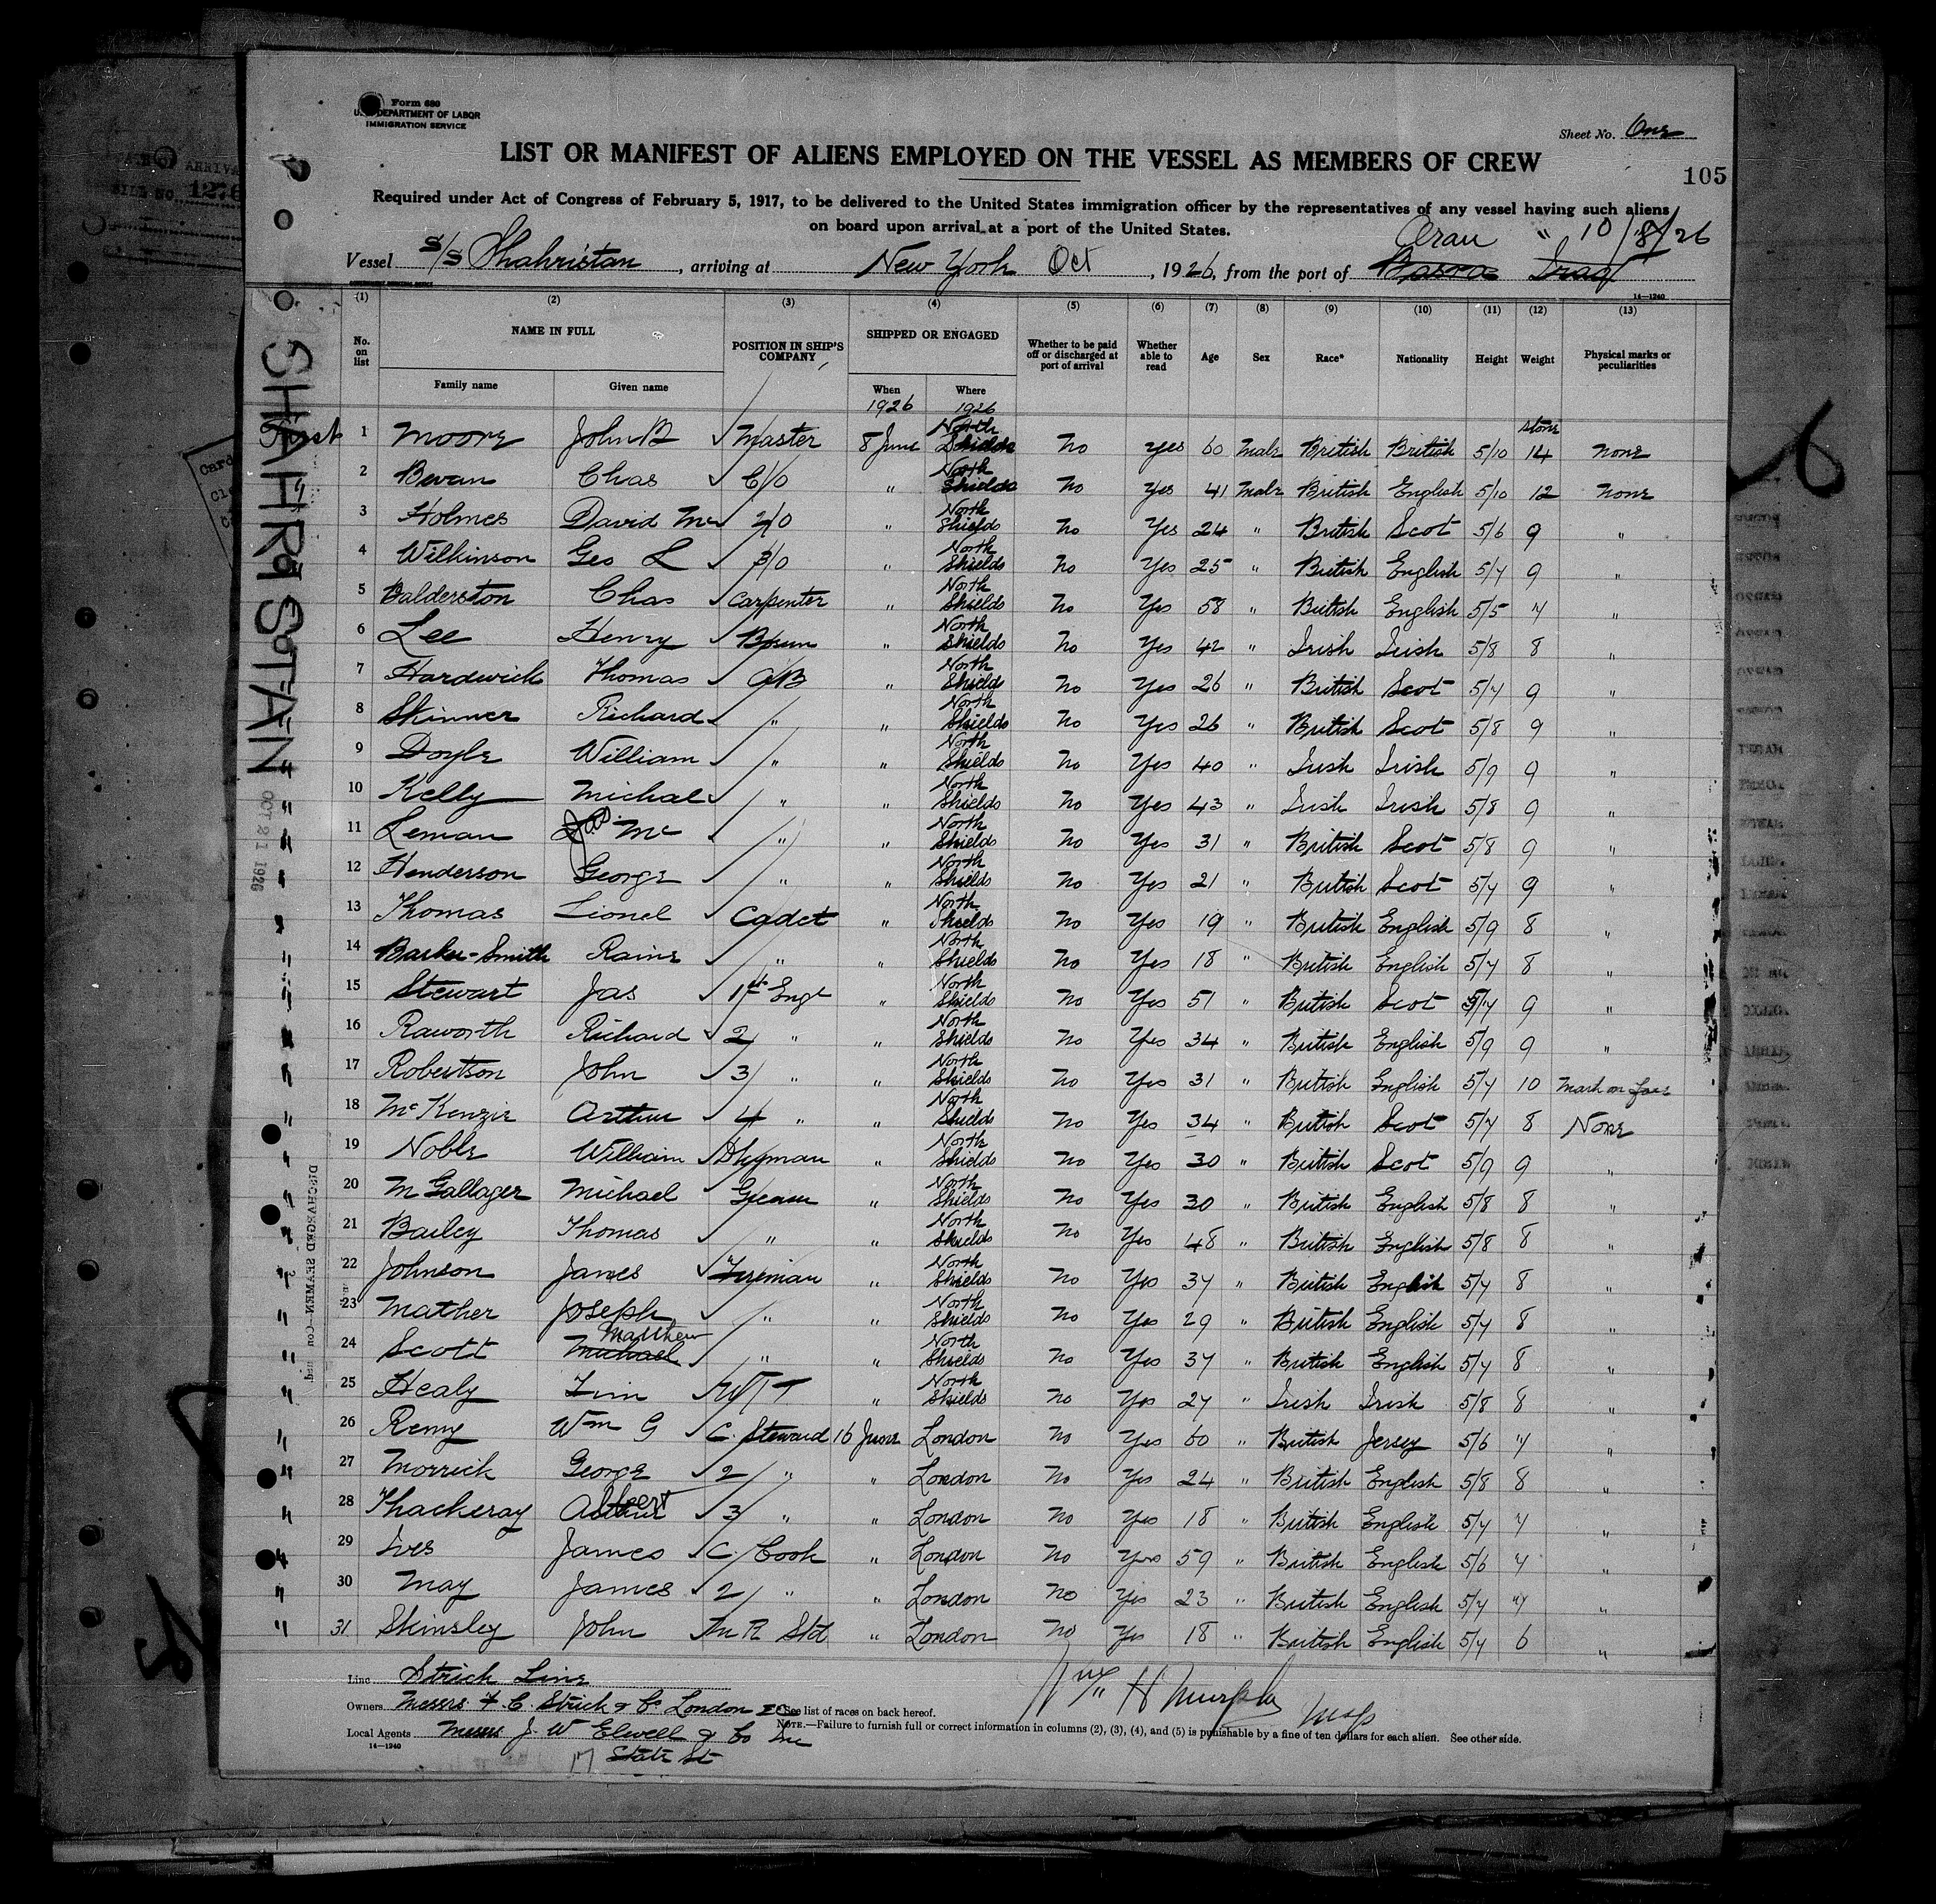 Form 680
U. S. DEPARTMENT OF LABOR
IMMIGRATION SERVICE
Sheet No. One
LIST OR MANIFEST OF ALIENS EMPLOYED ON THE VESSEL AS MEMBERS OF CREW
105
Required under Act of Congress of February 5, 1917, to be delivered to the United States immigration officer by the representatives of any vessel having such aliens
on board upon arrival at a port of the United States.
Oran " 10/8/26
Vessel S/S Shahristan, arriving at New York Oct, 1926, from the port of Basra Iraq
14—1240
(1) (2) (3) (4) (5) (6) (7) (8) (9) (10) (11) (12) (13)
No. on list NAME IN FULL POSITION IN SHIP'S COMPANY SHIPPED OR ENGAGED Whether to be paid off or discharged at port of arrival Whether able to read Age Sex Race* Nationality Height Weight Physical marks or peculiarities
Family name Given name When Where
1926 1926
stone
1 Moore John B Master 8 June North Shields No Yes 60 Male British British 5/10 14 None
2 Bevan Chas C/O " North Shields No Yes 41 Male British English 5/10 12 None
3 Holmes David Mc 2/0 " North Shields No Yes 24 " British Scot 5/6 9 "
4 Wilkinson Geo L 3/0 " North Shields No Yes 25 " British English 5/7 9 "
5 Balderston Chas Carpenter " North Shields No Yes 58 " British English 5/5 7 "
6 Lee Henry Bosun " North Shields No Yes 42 " Irish Irish 5/8 8 "
7 Hardwick Thomas AB " North Shields No Yes 26 " British Scot 5/7 9 "
8 Skinner Richard " " North Shields No Yes 26 " British Scot 5/8 9 "
9 Doyle William " " North Shields No Yes 40 " Irish Irish 5/9 9 "
10 Kelly Michal " " North Shields No Yes 43 " Irish Irish 5/8 9 "
11 Leman Jas Mc " " North Shields No Yes 31 " British Scot 5/8 9 "
12 Henderson George " " North Shields No Yes 21 " British Scot 5/7 9 "
13 Thomas Lionel Cadet " North Shields No Yes 19 " British English 5/9 8 "
14 Barker-Smith Raine " " North Shields No Yes 18 " British English 5/7 8 "
15 Stewart Jas 1st Engr " North Shields No Yes 51 " British Scot 5/7 9 "
16 Raworth Richard 2/ " " North Shields No Yes 34 " British English 5/9 9 "
17 Robertson John 3/ " " North Shields No Yes 31 " British English 5/7 10 Mark on face
18 McKenzie Arthur 4 " " North Shields No Yes 34 " British Scot 5/7 8 None
19 Noble William Dkyman " North Shields No Yes 30 " British Scot 5/9 9 "
20 Mc Gallager Michael Greaser " North Shields No Yes 30 " British English 5/8 8 "
21 Bailey Thomas " " North Shields No Yes 48 " British English 5/8 8 "
22 Johnson James Fireman " North Shields No Yes 37 " British English 5/7 8 "
23 Mather Joseph " " North Shields No Yes 29 " British English 5/7 8 "
24 Scott Michael Matthew " " North Shields No Yes 37 " British English 5/7 8 "
25 Healy Tim W/T " North Shields No Yes 27 " Irish Irish 5/8 8 "
26 Remy Wm G C. Steward 16 June London No Yes 60 " British Jersey 5/6 7 "
27 Morrick George 2/ " " London No Yes 24 " British English 5/8 8 "
28 Thackeray Albert 3/ " " London No Yes 18 " British English 5/7 7 "
29 Ives James C/ Cook " London No Yes 59 " British English 5/6 7 "
30 May James 2/ " " London No Yes 23 " British English 5/7 7 "
31 Skinsley John M R Std " London No Yes 18 " British English 5/7 6 "
Line Strick Line
Owners Messrs F. C. Strick & Co London
* See list of races on back hereof.
NOTE.—Failure to furnish full or correct information in columns (2), (3), (4), and (5) is punishable by a fine of ten dollars for each alien. See other side.
Local Agents Messrs J. W Elwell & Co Inc
14—1240
17 State St
Wm H Murphy
SHAHRISTAN
OCT 21 1926
DISCHARGED SEAMEN
ARRIVAL
1276